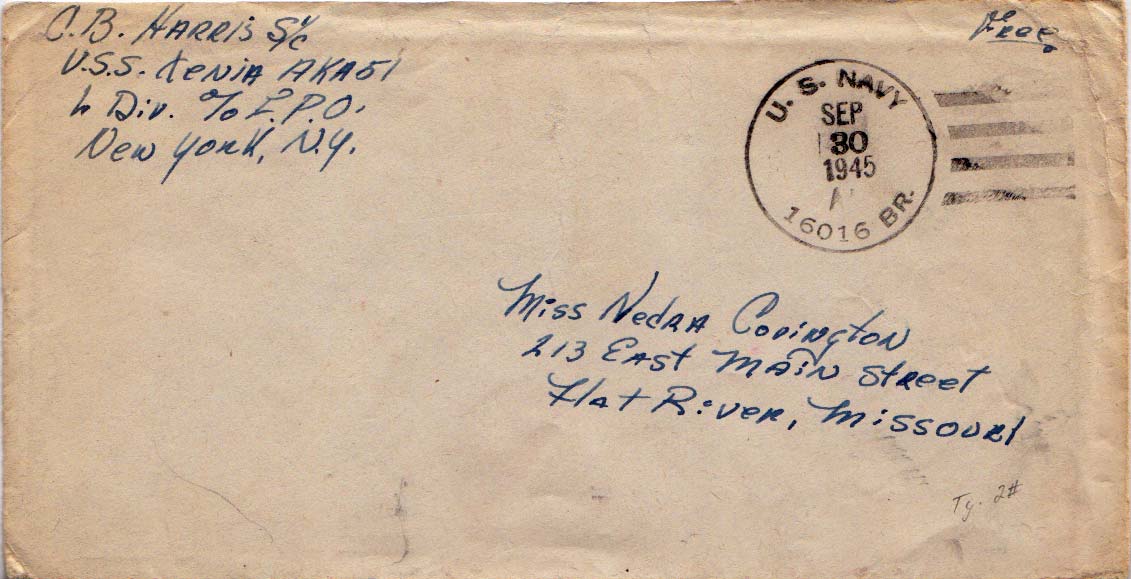 C.B. HARRIS S1/c
U.S.S. XENIA AKA51
L Div. c/o F.P.O.
New York, N.Y.
Free
U. S. NAVY
SEP
30
1945
16016 BR.
Miss Nedra Covington
213 East Main Street
Flat River, Missouri
Ty. 2#